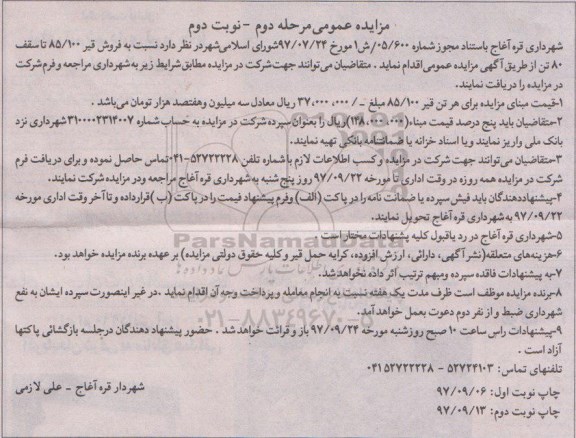 مزایده عمومی مرحله دوم - نوبت دوم
شهرداری قره آغاج باستناد مجوز شماره ۰۵/۶۰۰/ش۱ مورخ ۹۷/۰۷/۲۴ شورای اسلامی شهر در نظر دارد نسبت به فروش قیر ۸۵/۱۰۰ تا سقف
۸۰ تن از طریق آگهی مزایده عمومی اقدام نماید . متقاضیان می توانند جهت شرکت در مزایده مطابق شرایط زیر به شهرداری مراجعه و فرم شرکت
در مزایده را دریافت نمایند.
۱-قیمت مبنای مزایده برای هر تن قیر ۸۵/۱۰۰ مبلغ -/۳۷,۰۰۰,۰۰۰ ریال معادل سه میلیون و هفتصد هزار تومان می باشد .
۲-متقاضیان باید پنج درصد قیمت مبنا، (۱۴۸,۰۰۰,۰۰۰) ریال را بعنوان سپرده شرکت در مزایده به حساب شماره ۳۱۰۰۰۰۲۳۱۴۰۰۷ شهرداری نزد
بانک ملی واریز نمایند و یا اسناد خزانه یا ضمانتنامه بانکی تهیه نمایند.
۳-متقاضیان می توانند جهت شرکت در مزایده و کسب اطلاعات لازم با شماره تلفن ۵۲۷۲۲۲۲۸-۰۴۱ تماس حاصل نموده و برای دریافت فرم
شرکت در مزایده همه روزه در وقت اداری تا مورخه ۹۷/۰۹/۲۲ روز پنج شنبه به شهرداری قره آغاج مراجعه و در مزایده شرکت نمایند.
۴-پیشنهاددهندگان باید فیش سپرده یا ضمانت نامه را در پاکت (الف) و فرم پیشنهاد قیمت را در پاکت (ب) قرارداده و تا آخر وقت اداری مورخه
۹۷/۰۹/۲۲ به شهرداری قره آغاج تحویل نمایند.
۵-شهرداری قره آغاج در رد یا قبول کلیه پیشنهادات مختار است .
۶-هزینه های متعلقه (نشر آگهی، دارائی، ارزش افزوده، کرایه حمل قیر و کلیه حقوق دولتی مزایده) بر عهده برنده مزایده خواهد بود.
۷-به پیشنهادات فاقده سپرده و مبهم ترتیب اثر داده نخواهد شد.
۸-برنده مزایده موظف است ظرف مدت یک هفته نسبت به انجام معامله و پرداخت وجه آن اقدام نماید .در غیر اینصورت سپرده ایشان به نفع
شهرداری ضبط و از نفر دوم دعوت بعمل خواهد آمد.
۹-پیشنهادات راس ساعت ۱۰ صبح روزشنبه مورخه ۹۷/۰۹/۲۴ باز و قرائت خواهد شد . حضور پیشنهاد دهندگان درجلسه بازگشائی پاکتها
آزاد است .
تلفنهای تماس: ۵۲۷۲۴۱۰۳ - ۰۴۱۵۲۷۲۲۲۲۸
چاپ نوبت اول: ۹۷/۰۹/۰۶
شهردار قره آغاج - علی لازمی
چاپ نوبت دوم: ۹۷/۰۹/۱۳
ParsNamadData
۰۲۱-۸۸۳۴۹۶۷۰-۵